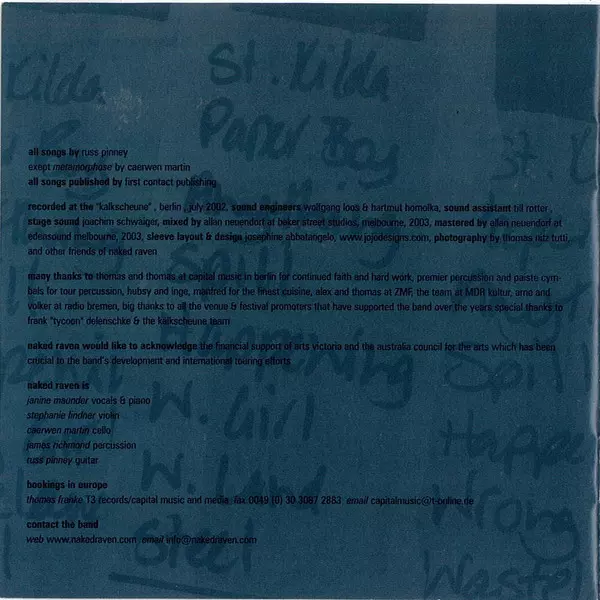 St. Kilda
Paper Boy
all songs by russ pinney
exept metamorphose by caerwen martin
all songs published by first contact publishing
recorded at the "kalkscheune" , berlin , july 2002, sound engineers wolfgang loos & hartmut homolka, sound assistant till rotter ,
stage sound joachim schwaiger, mixed by allan neuendorf at baker street studios, melbourne, 2003, mastered by allan neuendorf at
edensound melbourne, 2003, sleeve layout & design josephine abbatangelo, www.jojodesigns.com, photography by thomas räse tutti,
and other friends of naked raven
many thanks to thomas and thomas at capital music in berlin for continued faith and hard work, premier percussion and paiste cym-
bals for tour percussion, hubsy and inge, manfred for the finest cuisine, alex and thomas at ZMF, the team at MDR kultur, arno and
volker at radio bremen, big thanks to all the venue & festival promoters that have supported the band over the years special thanks to
frank "tycoen" delenschke & the kalkscheune team
naked raven would like to acknowledge the financial support of arts victoria and the australia council for the arts which has been
crucial to the band's development and international touring efforts
naked raven is
janine maunder vocals & piano
stephanie lindner violin
caerwen martin cello
james richmond percussion
russ pinney guitar
W. Girl
W. Land
bookings in europe
thomas franke T3 records/capital music and media, fax 0049 (0) 30 3087 2883 email capitalmusic@t-online.de
contact the band
web www.nakedraven.com email info@nakedraven.com
Steel
Kilda
Spill
Wrong
Waste